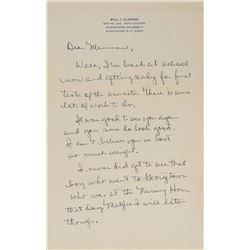 BILL J. CLINTON
GEORGETOWN UNIVERSITY
WASHINGTON, D. C. 20007
Dear Mammaw,
Well, I'm back at school
now and getting ready for first
tests of the semester. There is sure
lots of work to do.
It was good to see you again
and you sure do look good.
I can't believe you've lost
so much weight.
I never did get to see that
boy who went to Georgetown
who was at the Nursing Home
that day. Maybe I will later
though.